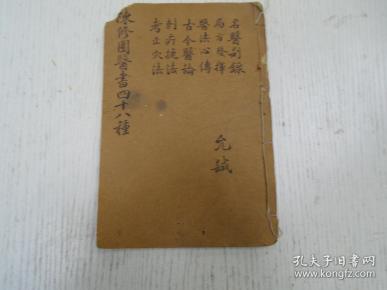 名醫別錄
局方發揮
醫法心傳
古今醫論
刺疔捷法
考正穴法
允誠
陳修園醫書四十八種
孔夫子旧书网
www.kongfz.com